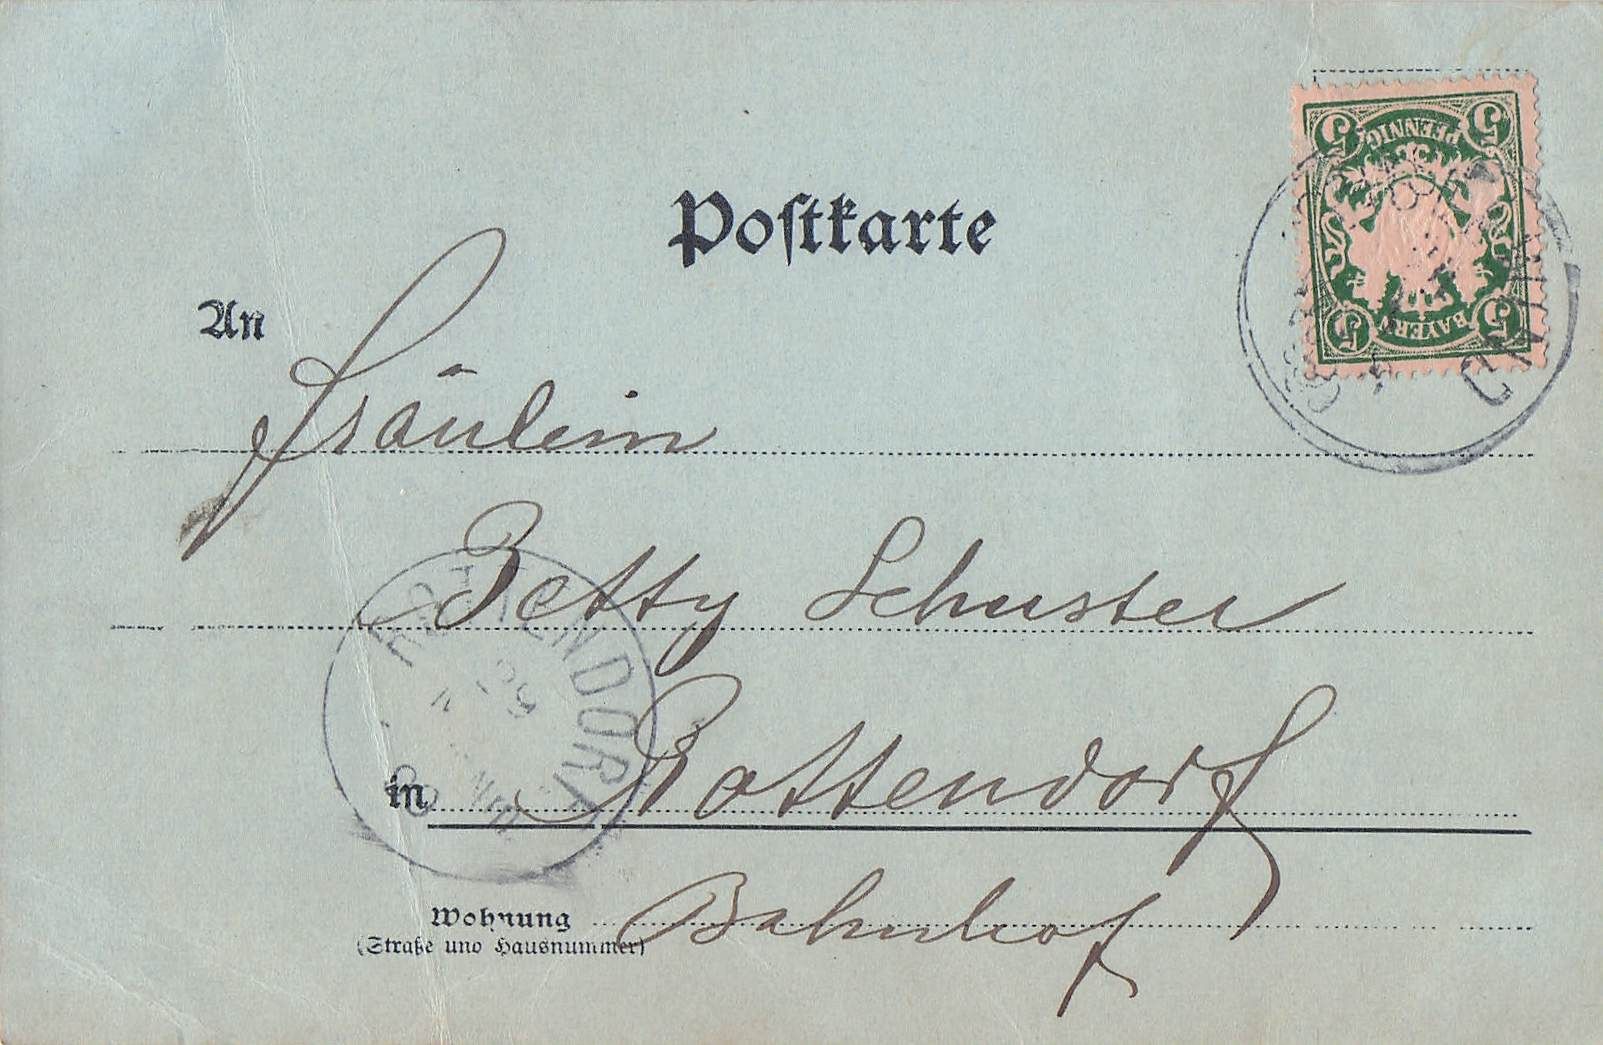 Postkarte
5 5
PFENNIG
BAYERN
5 5
An
Fräulein
Betty Schuster
ROTTENDORF
in Rottendorf
Wohnung Bahnhof
(Straße und Hausnummer)